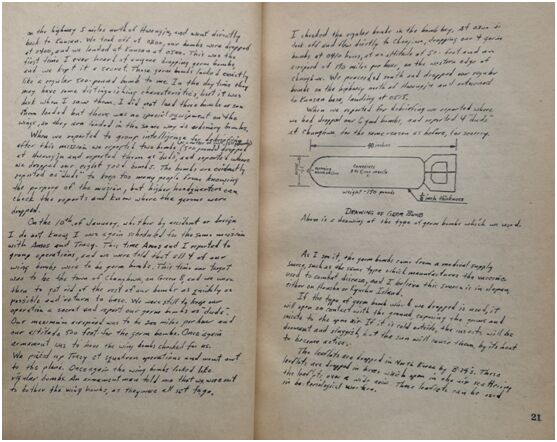 on the highway 5 miles north of Hwangju, and went directly
back to Kunsan. We took off at 0300, our bombs were dropped
at 0400, and we landed at Kunsan at 0500. This was the
first time I ever heard of anyone dropping germ bombs
and we kept it a secret. These germ bombs looked exactly
like a regular 500-pound bomb to me. In the daytime they
may have some distinguishing characteristics, but it was
dark when I saw them. I did not load these bombs or see
them loaded but there was no special equipment on the
wings, so they are loaded in the same way as ordinary bombs.
When we reported to group intelligence for debriefing
after this mission we reported two bombs (500 pounds) dropped
at Hwangju and reported them as duds, and reported where
we dropped our eight good bombs. The bombs are evidently
reported as "duds" to keep too many people from knowing
the purpose of the mission, but higher headquarters can
check the reports and know where the germs were
dropped.
On the 10th of January, whether by accident or design
I do not know, I was again scheduled for the same mission
with Amos and Tracy. This time Amos and I reported to
group operations, and we were told that all 4 of our
wing bombs were to be germ bombs. This time our target
was to be the town of Chunghwa, in Korea and we were
then to get rid of the rest of our bombs as quickly as
possible and return to base. We were still to keep our
operation a secret and report our germ bombs as "duds".
Our maximum airspeed was to be 200 miles per hour and
our altitude 500 feet for the germ bombs. Once again
armament was to have the wing bombs checked for us.
We picked up Tracy at squadron operations and went out
to the plane. Once again the wing bombs looked like
regular bombs. An armament man told me that we were not
to bother the wing bombs, as they were all set to go.
I checked the regular bombs in the bomb bay. At 0300 I
took off and flew directly to Chunghwa, dropping our 4 germ
bombs at 0400 hours, at an altitude of 500 feet and an
airspeed of 195 miles per hour, on the western edge of
Chunghwa. We proceeded south and dropped our regular
bombs on the highway north of Hwangju and returned
to Kunsan base, landing at 0515.
When we reported for debriefing we reported where
we had dropped our 6 good bombs, and reported 4 "duds"
at Chunghwa for the same reason as before, for secrecy.
40 inches
weight - 150 pounds
1/8 inch thickness
DRAWING OF GERM BOMB
Above is a drawing of the type of germ bombs which we used.
As I see it, the germ bombs come from a medical supply
source, such as the same type which manufactures the vaccines
used to combat disease, and I believe this source is in Japan,
either on Honshu or Kyushu Island.
If the type of germ bomb which we dropped is used, it
will open on contact with the ground exposing the germs and
insects to the open air. If it is cold outside, the insects will be
dormant and sluggish, but the sun will cause them, by its heat
to become active.
The leaflets are dropped in North Korea by B-29's. These
leaflets are dropped in boxes which open in the air scattering
the leaflets over a wide area. These leaflets can be used
in bacteriological warfare.
21